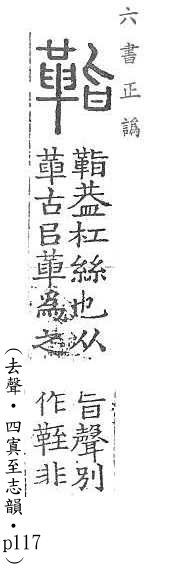 六書正譌
𩊝
𩊝葢杠絲也从
革古㠯革為之
旨聲別
作非
(去聲・四寘至志韻・p117)